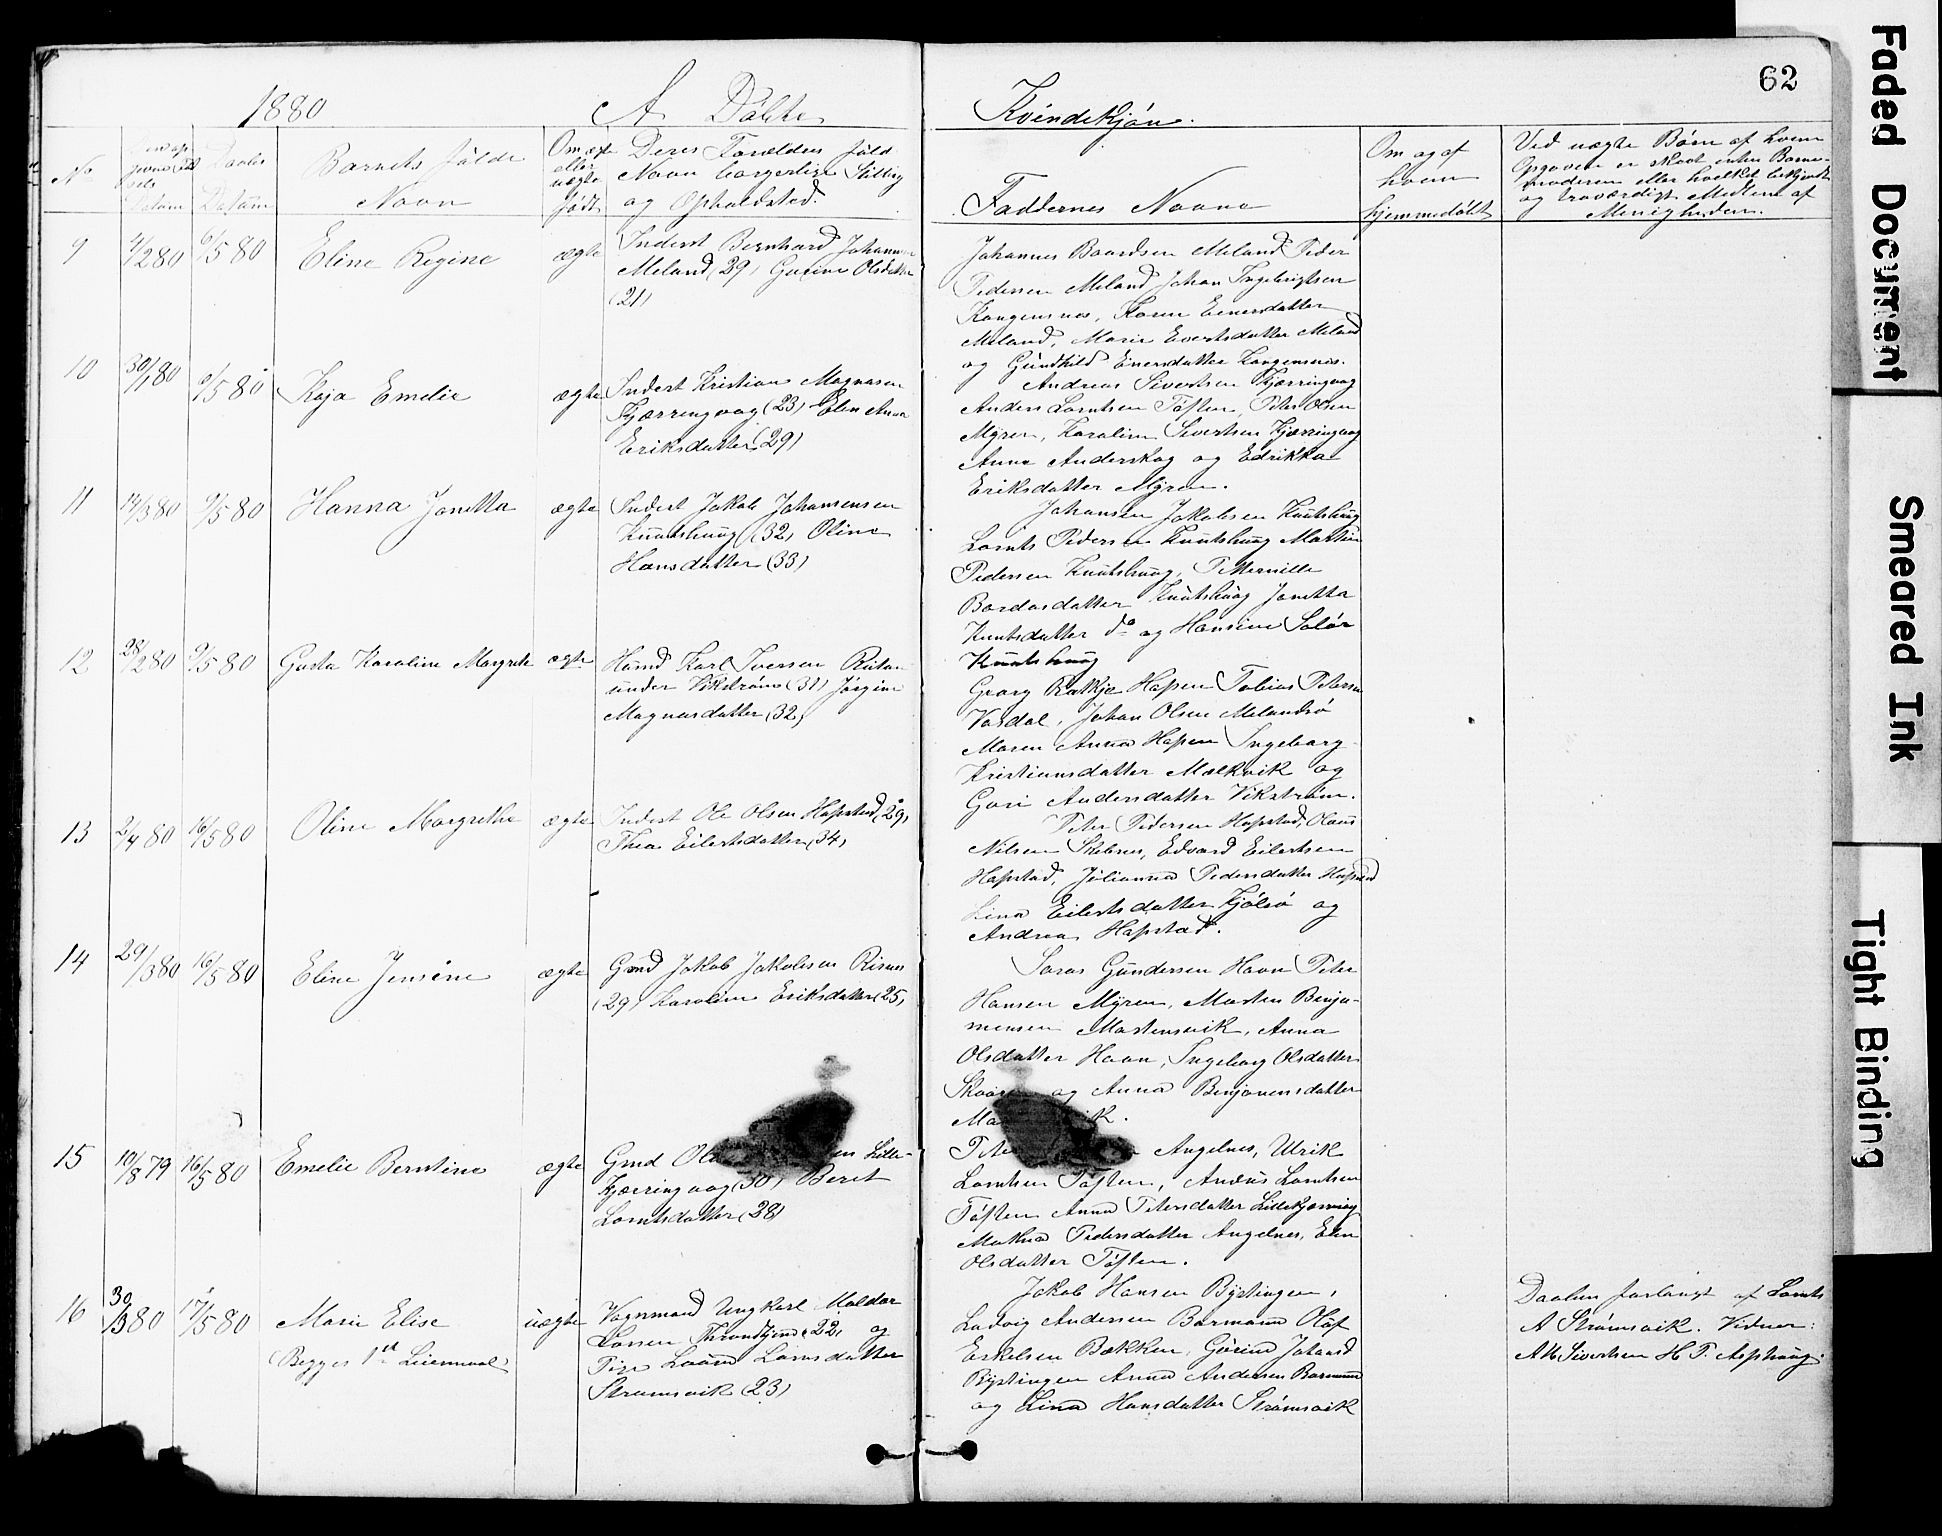 62
1880
A Döbte
Kvindekjön.
No
Daabs Datum
Barnets fulde Navn
Om ægte eller uægte født
Deres Forældres fulde Navn borgerlige Stilling og Opholdsted.
Faddernes Navne
Om og af hvem hjemmedöbt
Ved uægte Børn af hvem
Opgaven er skeet enten Barne-
moderen eller hvilket bekjendt
og troværdigt Medlem af
Menigheden.
9 4/2 80 9/5 80 Eline Regine ægte
Inderst Bernhard Johannesen
Meland (29) Gurine Olsdatter
(21)
Johannes Baardsen Meland Peder
Pedersen Meland Johan Ingebrigtsen
Kongensnes, Karen Einersdatter
Meland, Marie Evertsdatter Meland
og Gundhild Einersdatter Kongensnes.
10 30/1 80 9/5 80 Kaja Emelie ægte
Inderst Kristian Magnusen
Kjærringvaag (23) Elen Anna
Eriksdatter (29)
Andreas Sivertsen Kjærringvaag
Anders Lorntsen Töften, Peter Olsen
Myren, Karoline Sivertsen Kjærringvaag
Anna Anderskog og Edrikka
Eriksdatter Myren.
11 14/3 80 9/5 80 Hanna Janetta ægte
Inderst Jakob Johansensen
Knutshaug (32) Oline
Hansdatter (33)
Johansen Jakobsen Knutshaug
Lornts Pedersen Knutshaug Martin
Pedersen Knutshaug, Petternille
Bardosdatter Knutshaug Janetta
Knutsdatter do og Hansine Solör
Knutshaug
12 28/2 80 9/5 80 Gusta Karoline Margrete ægte
Husmd Karl Iversen
under Vikström (31) Jörgine
Magnusdatter (32)
Georg Ratkje Hapen Tobias Petersen
Vasdal, Johan Olsen Melandsö
Maren Anna Hapen Ingeborg
Kristiansdatter Mælkvik og
Guri Andersdatter Vikström.
13 2/4 80 16/5 80 Oline Margrethe ægte
Inderst Ole Olsen Hapstad (29)
Thea Eilertsdatter (34)
Peter Pedersen Hapstad, Olaus
Nilsen Skebnes, Edvard Eilertsen
Hapstad, Julianna Pedersdatter Hapstad
Lina Eilertsdatter Kjölsö og
Andrea Hapstad.
14 29/3 80 16/5 80 Eline Jensine ægte
Gmd Jakob Jakobsen Risnes
(29) Karoline Eriksdatter (25)
Saras Gundersen Havn Peter
Hansen Myren, Morten Benja-
mensen Mortensvik, Anna
Olsdatter Havn, Ingeborg Olsdatter
og Anna Benjamensdatter
15 10/8 79 16/5 80 Emelie Berntine ægte
Gmd Lille-
Kjærringvaag (30) Beret
Lorntsdatter (28)
Angelnes, Ulrik
Lorntsen Töften, Andreas Lorntsen
Töften Anna Petersdatter Lillekjærringvaag
Mathea Pedersdatter Angelnes, Elen
Olsdatter Töften.
16 30/3 80 17/5 80 Marie Elise uægte
(Begges 1ste Leiermaal)
Vognmand Ungkarl Haldor
Larsen Throndhjem (22) og
Pige Laura Larsdatter
Strømsvik (23)
Jakob Hansen Bystingen,
Ludvig Andersen Barmand Olaf
Eskelsen Bækken, Gurine Johansd
Bystingen Anna Andersen Barmand
og Lina Hansdatter Strømsvik
Daaben forlangt af Lornts
A Strømsvik. Vidner:
A M Sivertsen H P. Asphaug.
Faded Document
Smeared Ink
Tight Binding